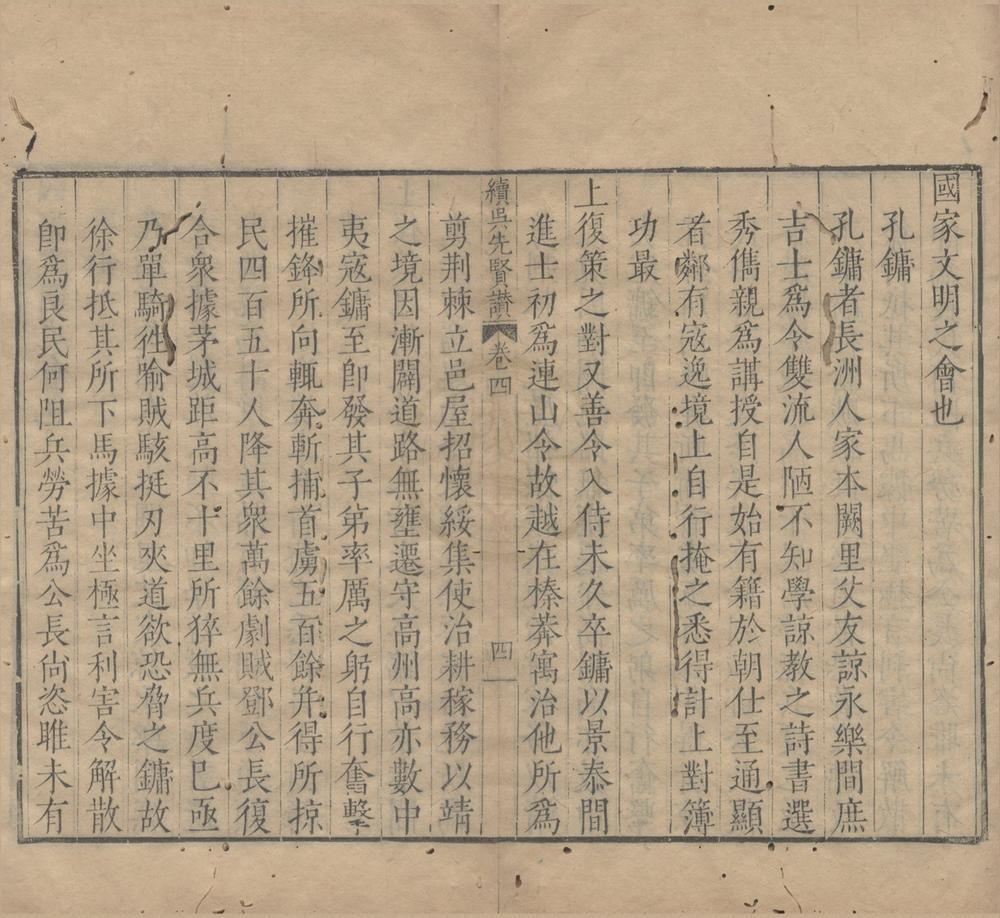 國家文明之會也
孔鏞
孔鏞者長洲人家本闕里父友諒永樂間庶
吉士爲令雙流人陋不知學諒教之詩書選
秀儁親爲講授自是始有籍於朝仕至通顯
者鄰有寇逸境上自行掩之悉得計上對簿
功最
上復策之對又善令入侍未久卒鏞以景泰間
進士初爲連山令故越在榛莽寓治他所爲
續吳先賢讃
卷四
四
剪荆棘立邑屋招懷綏集使治耕稼務以靖
之境因漸闢道路無壅遷守高州高亦數中
夷寇鏞至卽發其子第率厲之躬自行奮擊
摧鋒所向輒奔斬捕首虜五百餘并得所掠
民四百五十人降其衆萬餘劇賊鄧公長復
合衆據茅城距高不十里所猝無兵度已亟
乃單騎徃喻賊駭挺刃夾道欲恐脅之鏞故
徐行抵其所下馬據中坐極言利害令解散
卽爲良民何阻兵勞苦爲公長尙恣睢未有